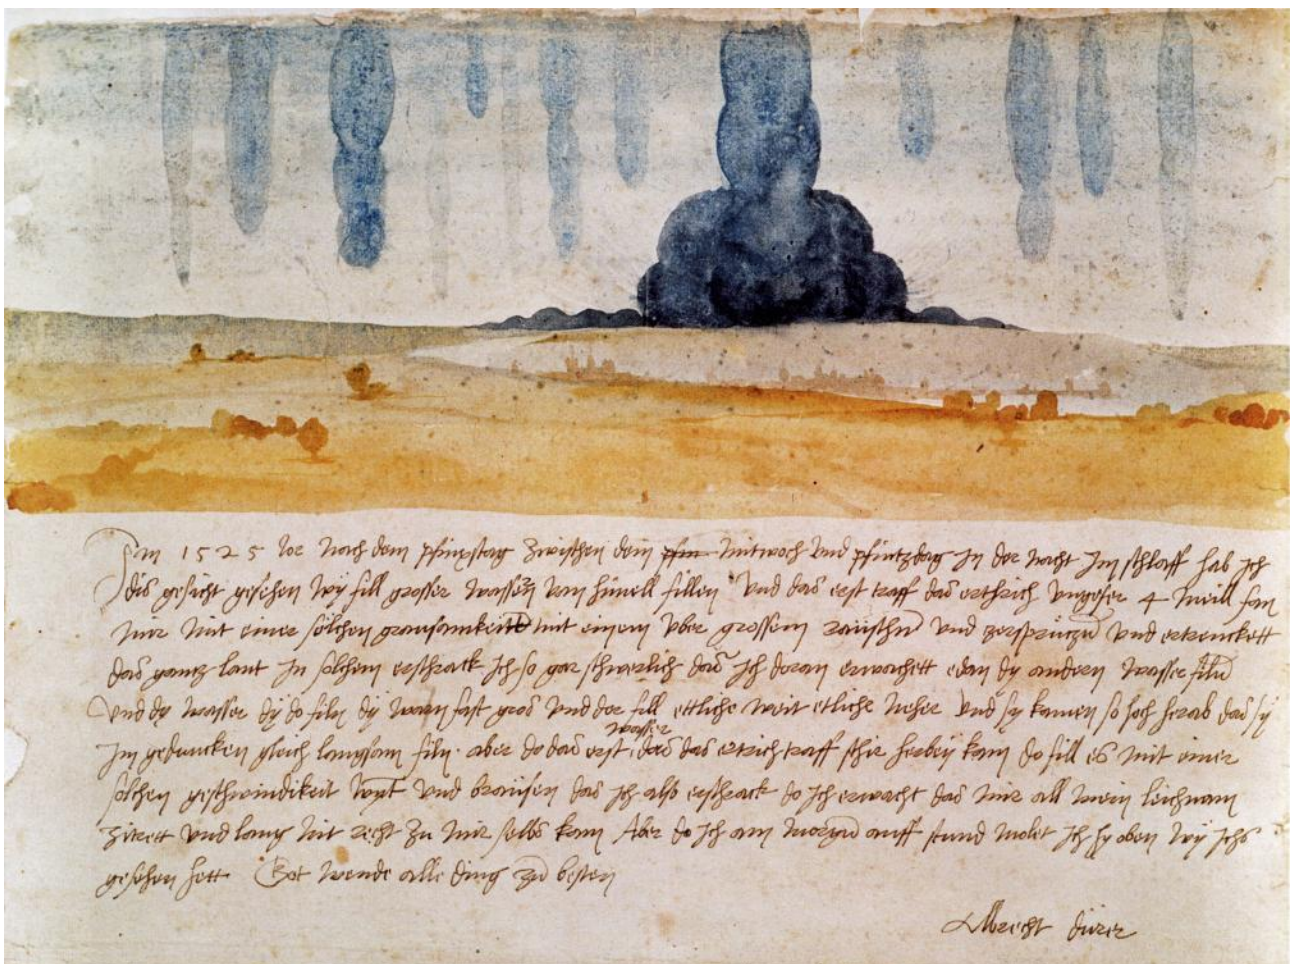 Im 1525 Jor noch dem pfinxstag zwischen dem pfin Mitwoch und pfintzdag in der nacht Im schlaff hab ich
dis gesicht gesehen wy fill grosser wassern vam himell fillen Und das erst traff das erthrich ungefer 4 meill fan
mir mit einer solchen grausamkeitt mit einem uber grossem raüschn und zersprützn und ertrenckett
das gantz lant In solchem erschrack ich so gar schwerlich das ich doran erwachett edan dy andern wasser filn
Und dy wasser dy do filn dy warn fast gros und der fill ettliche weit etliche neher und sy kamen so hoch herab das sy
Im gedancken gleich langsam filn. aber do das erst wasser das das ertrich traff schir herbey kam do fill es mit einer
solchen geschwindikeit wynt und braüsen das ich also erschrack do ich erwacht das mir all mein leichnam
zitrett und lang nit recht zu mir selbs kam Aber do ich am morgn auff stund molet ich hy oben wy ichs
gesehen hett Got wende alle ding zu besten
Albrecht dürer